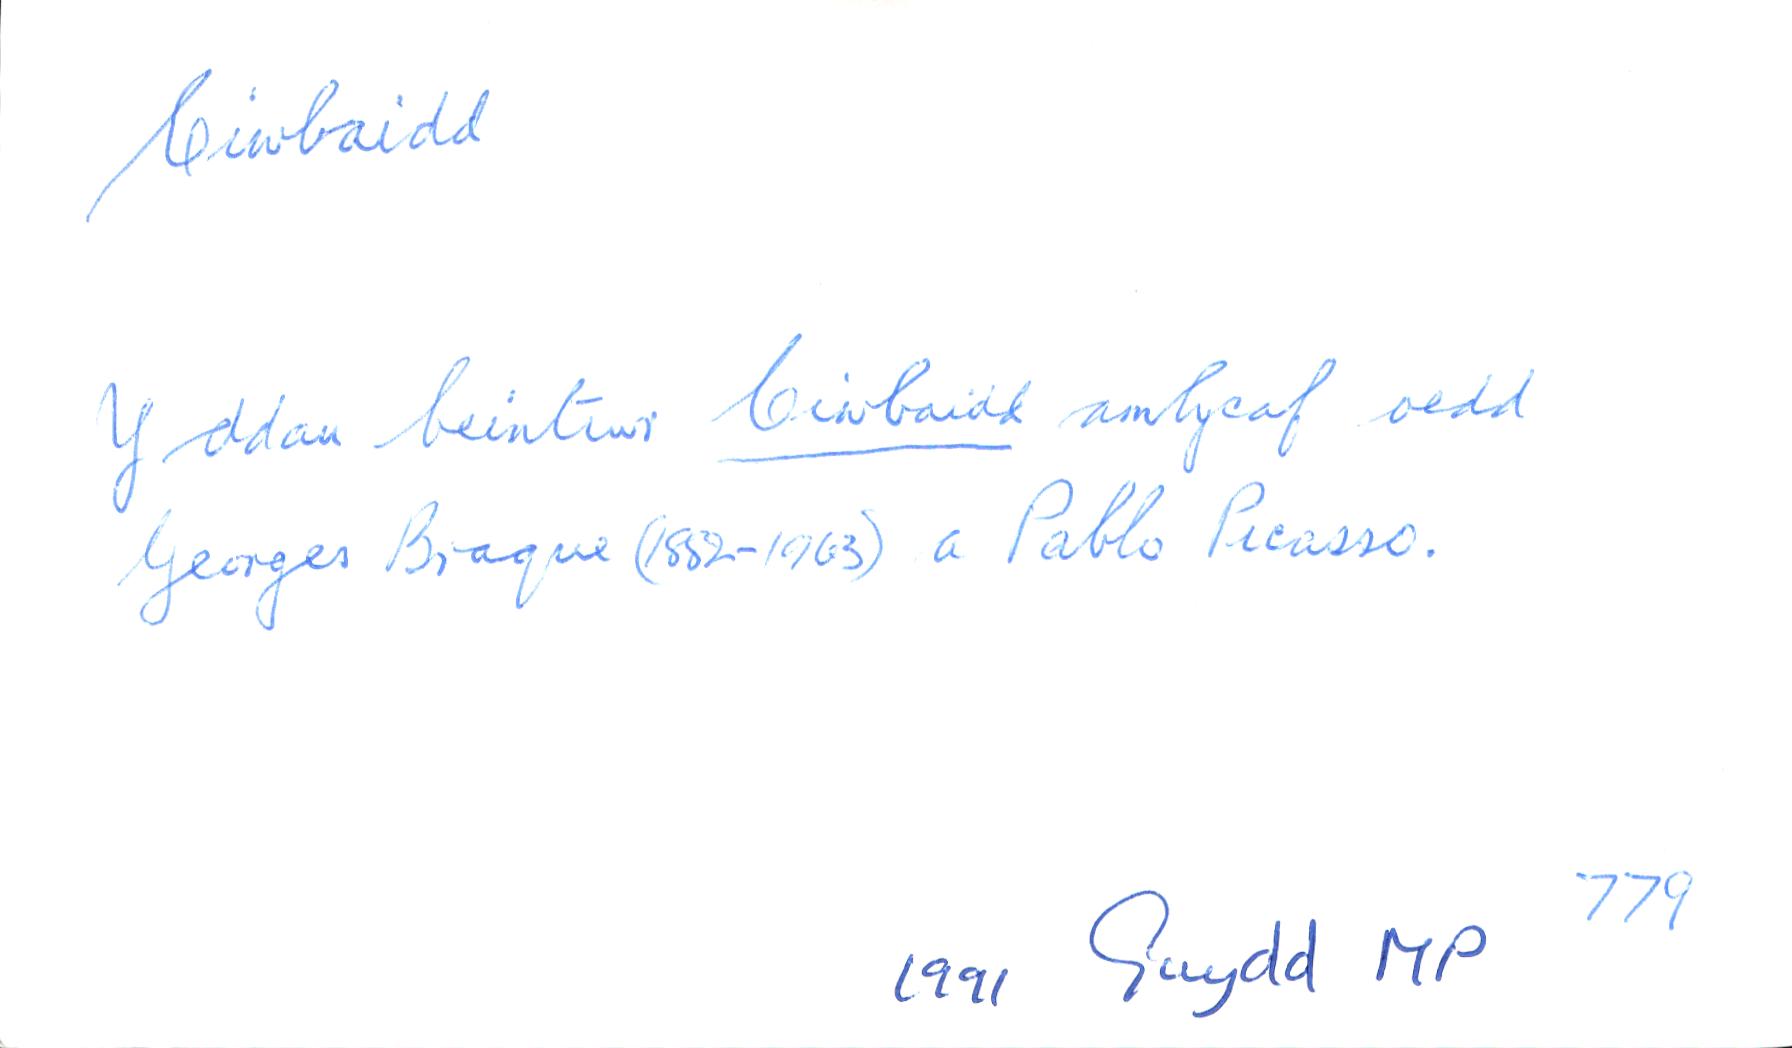 Ciwbaidd
Y ddau beintiwr Ciwbaidd amlycaf oedd
Georges Braque (1882-1963) a Pablo Picasso.
779
1991 Gwydd MP